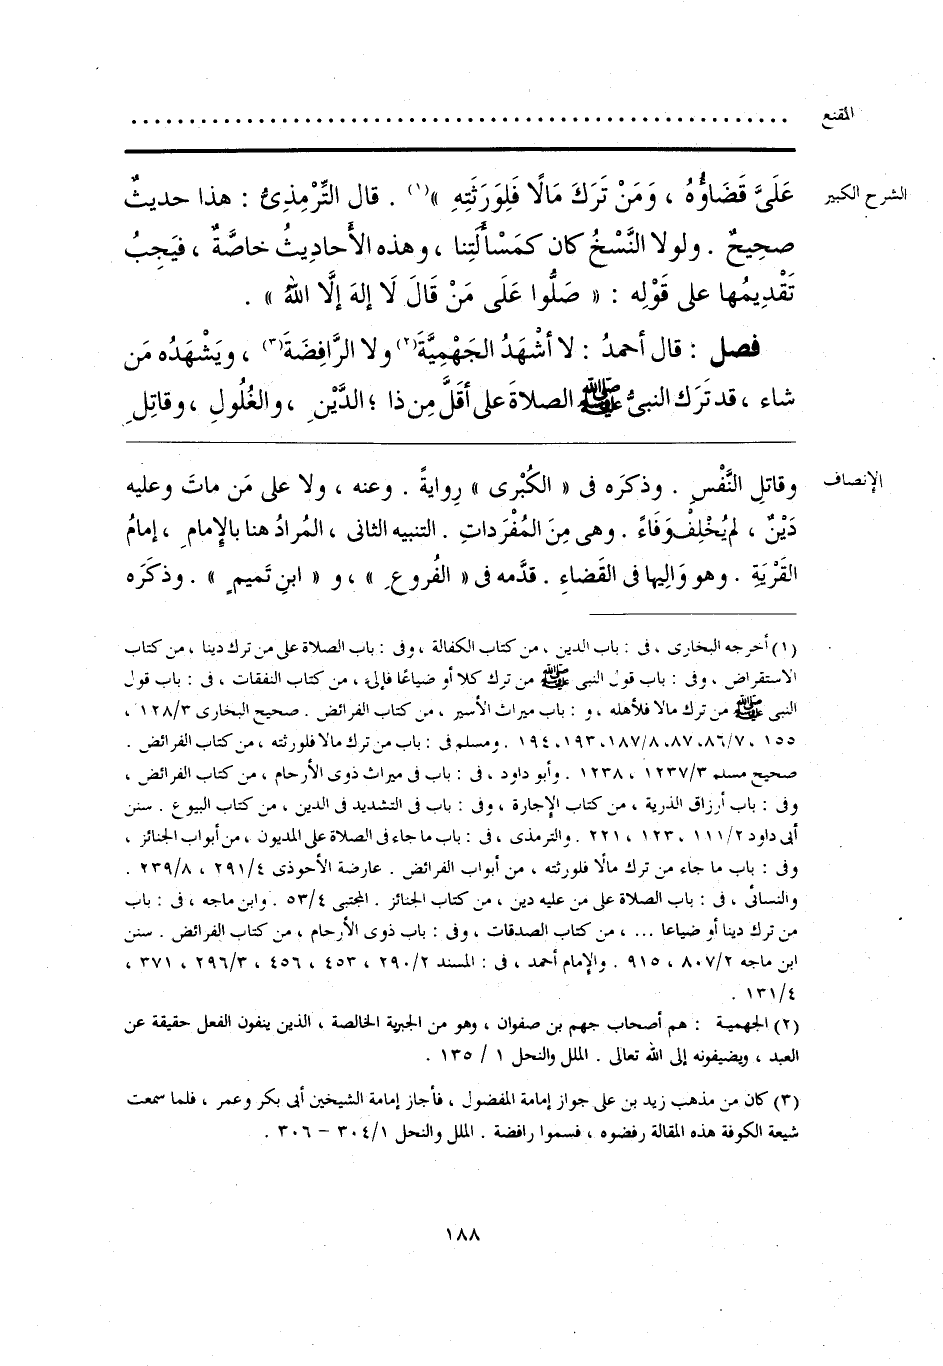 المقنع ........................................................
الشرح الكبير عَلَىَّ قَضَاؤُهُ ، وَمَنْ تَرَكَ مَالًا فَلِوَرَثَتِهِ »(١) . قال التِّرْمِذِىُّ : هذا حديثٌ
صحيحٌ . ولولا النَّسْخُ كان كمَسْأَلَتِنا ، وهذه الأَحاديثُ خاصَّةٌ ، فيَجِبُ
تَقْدِيمُها على قَوْلِه : « صَلُّوا عَلَى مَنْ قَالَ لَا إلهَ إلَّا اللهُ » .
فصل : قال أحمدُ : لا أشْهَدُ الجَهْمِيَّةَ(٢) ولا الرَّافِضَةَ(٣) ، ويَشْهَدُه مَن
شاء ، قد تَرَك النبىُّ ﷺ الصلاةَ على أقَلَّ مِن ذا ؛ الدَّيْنِ ، والغُلُولِ ، وقاتِلِ
الإنصاف وقاتلِ النَّفْسِ . وذكرَه فى « الكُبْرى » رِوايةً . وعنه ، ولا على مَن ماتَ وعليه
دَيْنٌ ، لم يُخْلِفْ وَفَاءً . وهى مِنَ المُفْرَداتِ . التنبيه الثانى ، المُرادُ هنا بالإِمامِ ، إمامُ
القَرْيَةِ . وهو وَالِيها فى القَضاءِ . قدَّمه فى « الفُروعِ » ، و « ابنِ تَميمٍ » . وذكَرَه
(١) أخرجه البخارى ، فى : باب الدين ، من كتاب الكفالة ، وفى : باب الصلاة على من ترك دينا ، من كتاب
الاستقراض ، وفى : باب قول النبى ﷺ من ترك كلا أو ضياعًا فإلىَّ ، من كتاب النفقات ، فى : باب قول
النبى ﷺ من ترك مالا فلأهله ، و : باب ميراث الأسير ، من كتاب الفرائض . صحيح البخارى ١٢٨/٣ ،
١٥٥ ، ٨٦/٧ ، ٨٧ ، ١٨٧/٨ ، ١٩٣ ، ١٩٤ . ومسلم فى : باب من ترك مالا فلورثته ، من كتاب الفرائض .
صحيح مسلم ١٢٣٧/٣ ، ١٢٣٨ . وأبو داود ، فى : باب فى ميراث ذوى الأرحام ، من كتاب الفرائض ،
وفى : باب أرزاق الذرية ، من كتاب الإجارة ، وفى : باب فى التشديد فى الدين ، من كتاب البيوع . سنن
أبى داود ١١١/٢ ، ١٢٣ ، ٢٢١ . والترمذى ، فى : باب ما جاء فى الصلاة على المديون ، من أبواب الجنائز ،
وفى : باب ما جاء من ترك مالًا فلورثته ، من أبواب الفرائض . عارضة الأحوذى ٢٩١/٤ ، ٢٣٩/٨ .
والنسائى ، فى : باب الصلاة على من عليه دين ، من كتاب الجنائز . المجتبى ٥٣/٤ . وابن ماجه ، فى : باب
من ترك دينا أو ضياعا ... ، من كتاب الصدقات ، وفى : باب ذوى الأرحام ، من كتاب الفرائض . سنن
ابن ماجه ٨٠٧/٢ ، ٩١٥ . والإمام أحمد ، فى : المسند ٢٩٠/٢ ، ٤٥٣ ، ٤٥٦ ، ٢٩٦/٣ ، ٣٧١ ،
١٣١/٤ .
(٢) الجهمية : هم أصحاب جهم بن صفوان ، وهو من الجبرية الخالصة ، الذين ينفون الفعل حقيقة عن
العبد ، ويضيفونه إلى الله تعالى . الملل والنحل ١ / ١٣٥ .
(٣) كان من مذهب زيد بن على جواز إمامة المفضول ، فأجاز إمامة الشيخين أبى بكر وعمر ، فلما سمعت
شيعة الكوفة هذه المقالة رفضوه ، فسموا رافضة . الملل والنحل ٣٠٤/١ – ٣٠٦ .
١٨٨